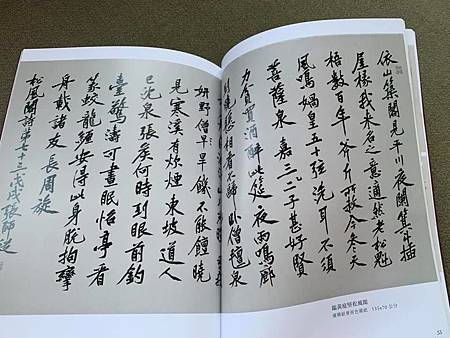 依山築閣見平川夜闌箕斗插
屋椽我來名之意適然老松魁
梧數百年斧斤所赦今參天
風鳴媧皇五十弦洗耳不須
菩薩泉嘉二三子甚好賢
力貧買酒醉此筵夜雨鳴廊
到曉懸相看不歸臥僧氈泉
妍野僧早饑不能饘曉
見寒溪有炊煙東坡道人
已沈泉張侯何時到眼前釣
臺驚濤可晝眠怡亭看
篆蛟龍纏安得此身脫拘攣
舟載諸友長周旋
松風閣詩第七十三戊戌張師
臨黃庭堅松風閣
135x70 公分
55